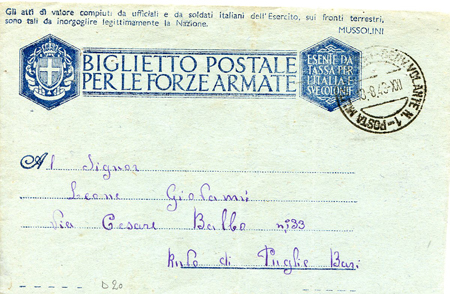 Gli atti di valore compiuti da ufficiali e da soldati italiani dell'Esercito, sui fronti terrestri,
sono tali da inorgoglire legittimamente la Nazione.
MUSSOLINI
BIGLIETTO POSTALE
PER LE FORZE ARMATE
ESENTE DA
TASSA PER
L'ITALIA E
SVE COLONIE
VOLANTE N. 1 - POSTA
Al Signor
Leone Giovanni
Via Cesare Balbo n° 33
Ruvo di Puglie Bari
D20